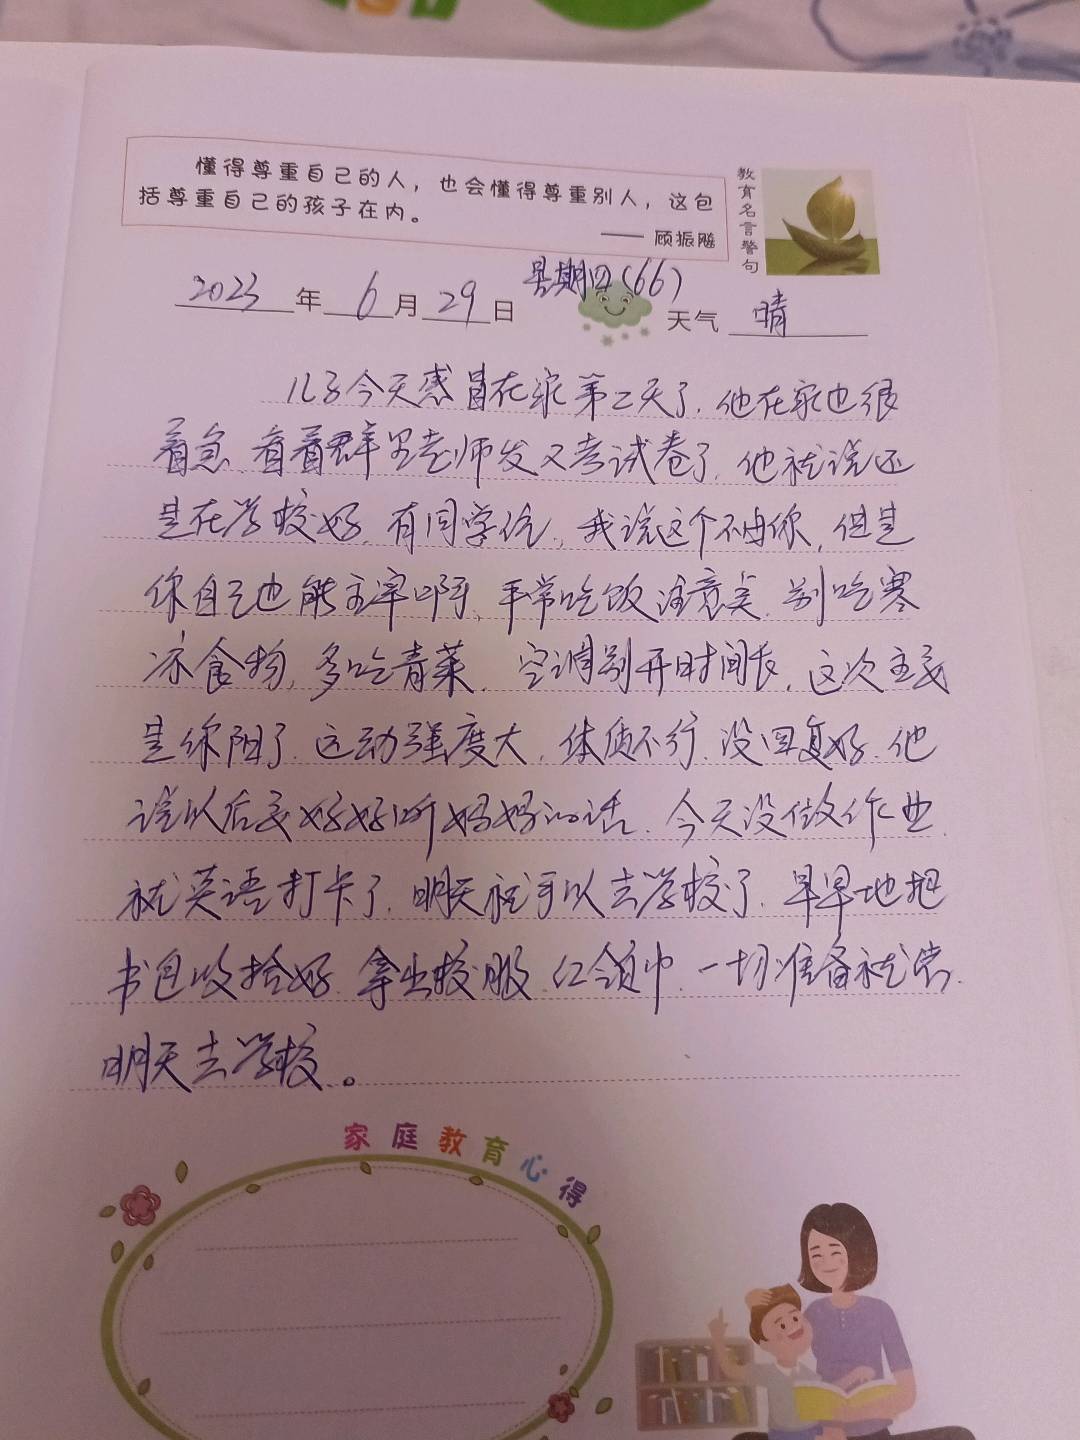 懂得尊重自己的人，也会懂得尊重别人，这包
括尊重自己的孩子在内。
—— 顾振飚
教育名言警句
2023年6月29日 星期四(66) 天气 晴
儿子今天感冒在家第二天了.他在家也很
着急.看着群里老师发又考试卷了.他就说还
是在学校好.有同学伦.我说这个不由你,但是
你自己也能主宰啊.平常吃饭注意点.别吃寒
凉食物,多吃青菜.空调别开时间长.这次主要
是你阳了.运动强度大.体质不行.没回复好.他
说以后要好好听妈妈的话.今天没做作业.
就英语打卡了.明天就可以去学校了.早早地把
书包收拾好.拿出校服.红领巾.一切准备就
明天去学校。
家庭教育心得